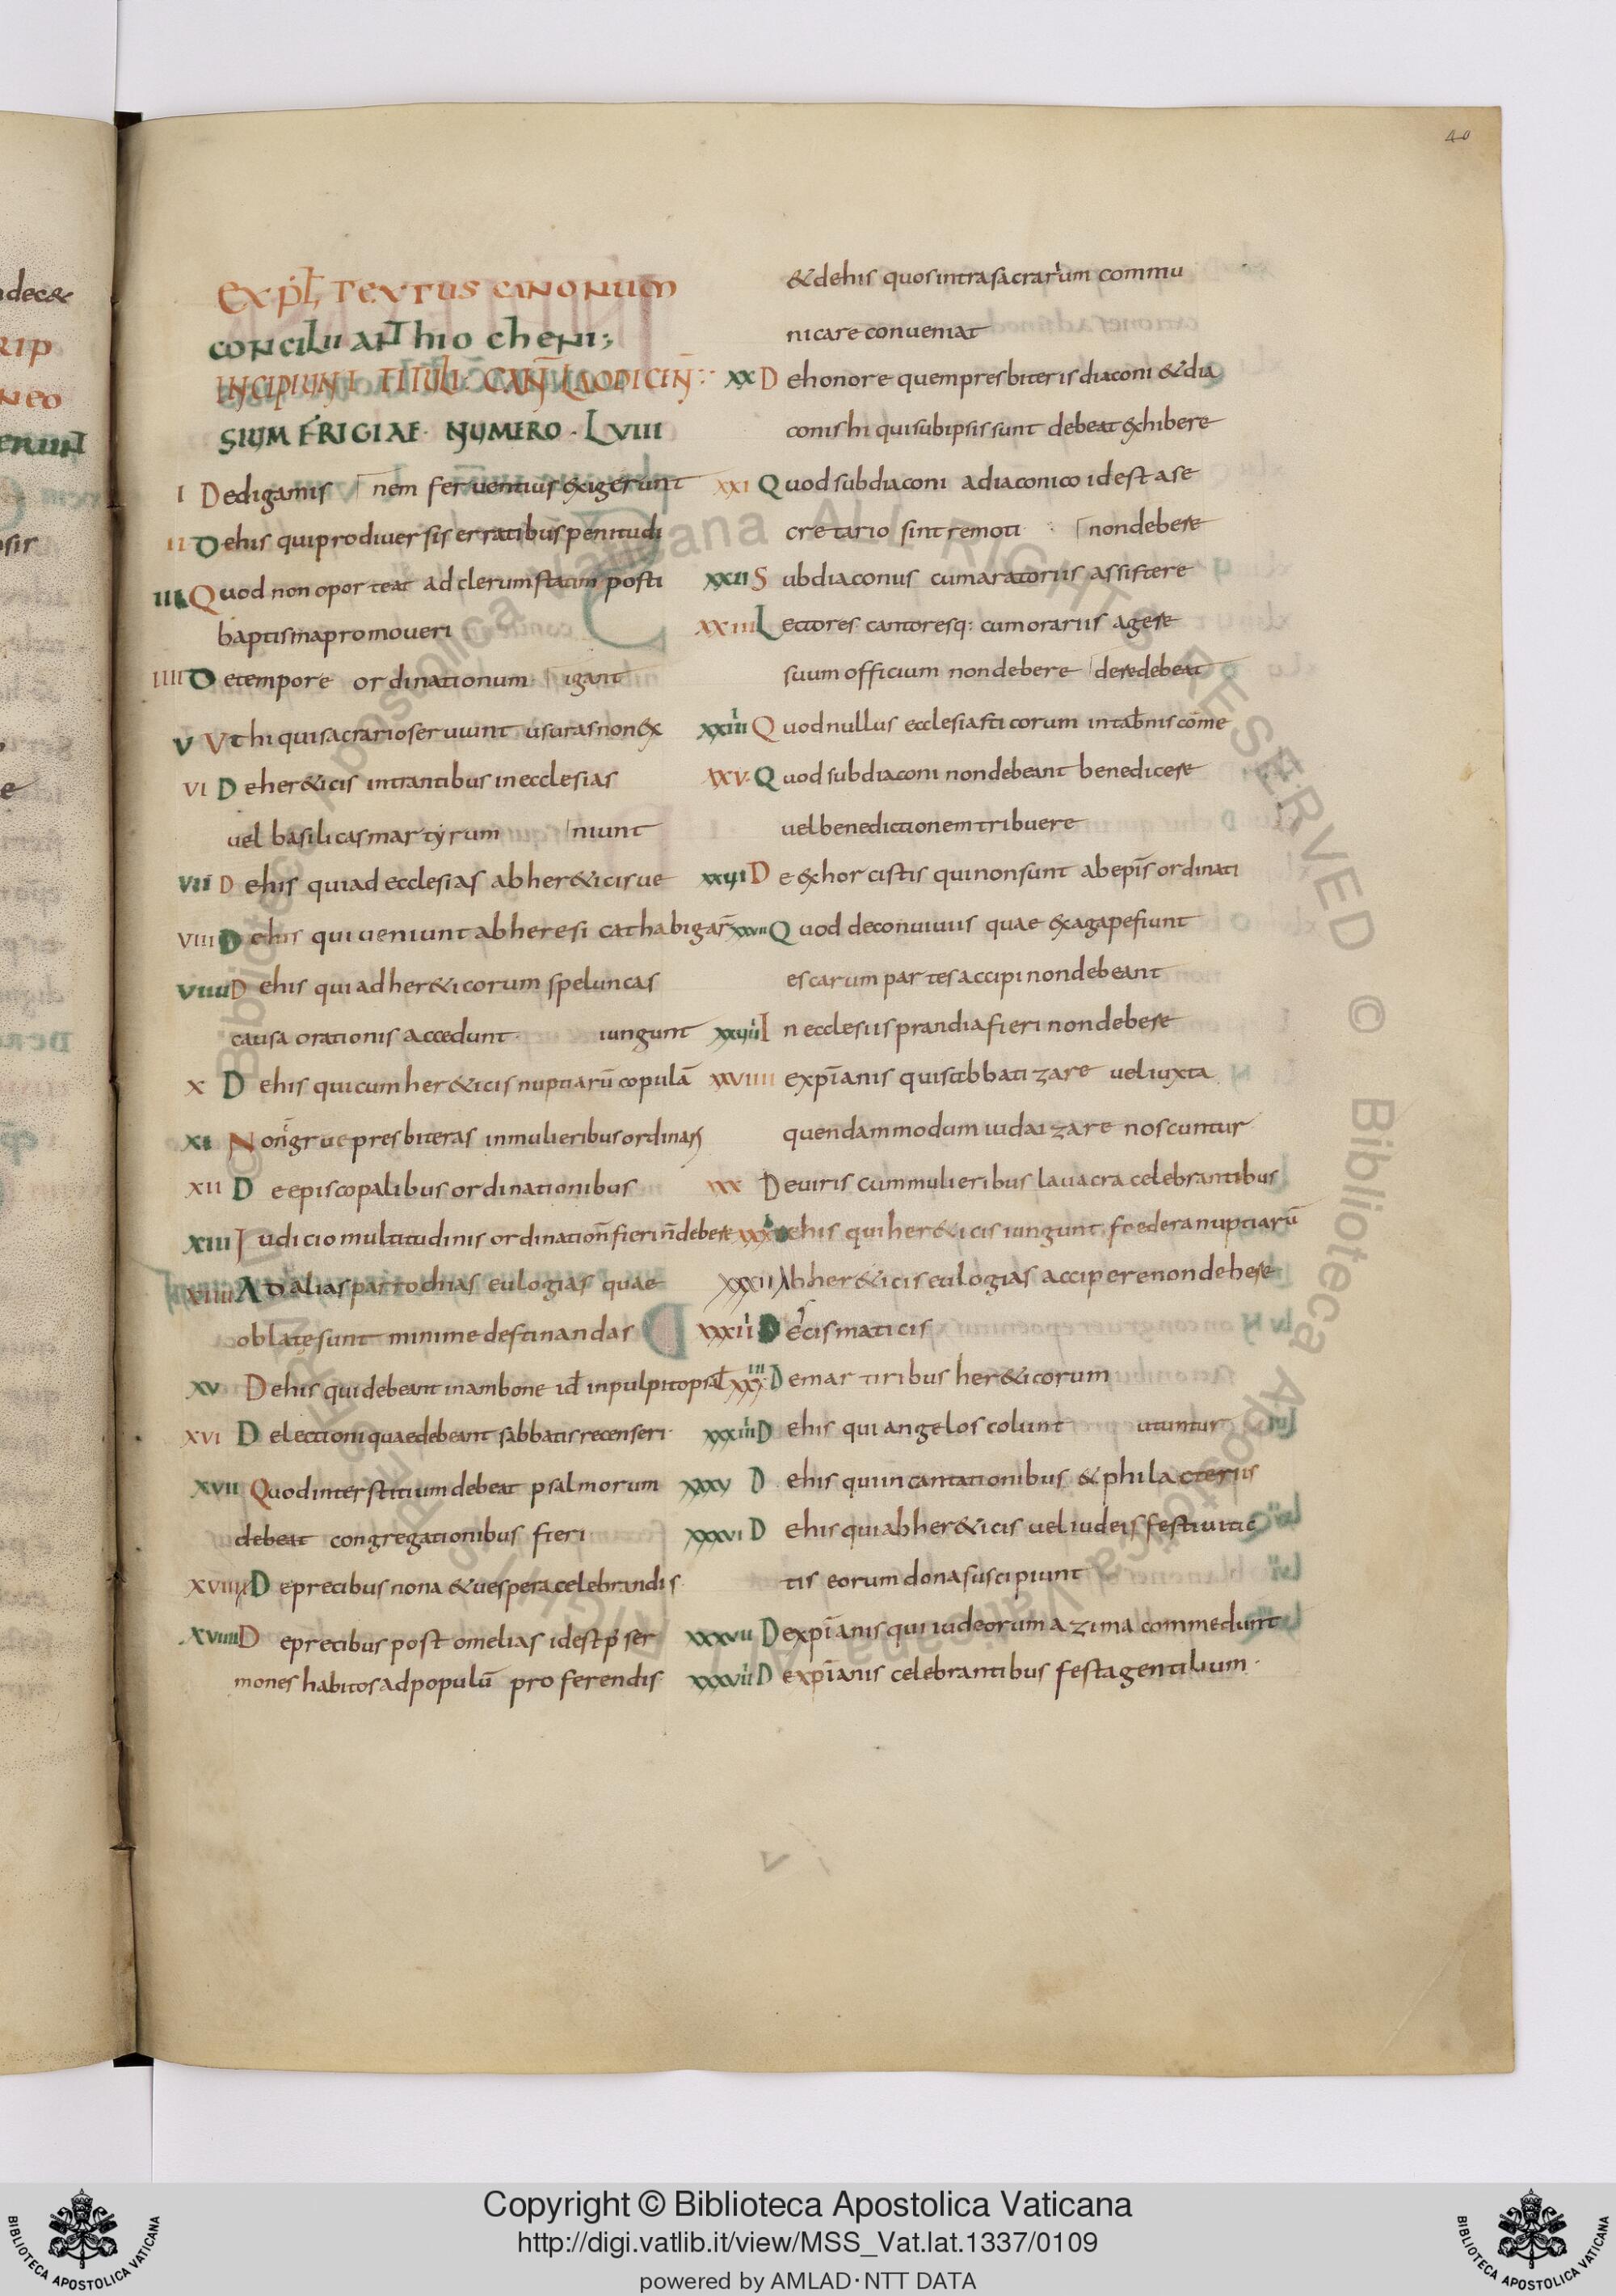 40
Expl textus canonum
concilii anthiocheni;
INCIPIUNT TITULI CAN̄ LAODICIN̄
SIUM FRIGIAE NUMERO LVIII
I Dedigamis nem feruentius exigerunt
II Dehis quiprodiuersis erratibuspenitudi
III Quod non oporteat adclerumstatim posti
baptismapromoueri
IIII Detempore ordinationum igant
V Vt hi quisacrarioseruiunt usurasnonex
VI Deher&icis intrantibus inecclesias
uel basilicasmartyrum niunt
VII Dehis quiad ecclesias abher&icisue
VIII Dehis qui ueniunt abheresi cathabigar̄
VIIII Dehis qui adher&icorum speluncas
causa orationis accedunt iungunt
X Dehis quicumher&icis nuptiarū copulā
XI Non̄grue presbiteras inmulieribusordinari
XII Deepiscopalibus ordinationibus
XIII Iudiciomultitudinis ordination̄fierin̄debere
XIIII Ad aliasparrochias eulogias quae
oblatesunt minime destinandas
XV Dehis quidebeant inambone id̄ inpulpitopsal̄
XVI Delectioni quaedebeant sabbatisrecenseri
XVII Quodinterstitiumdebeat psalmorum
debeat congregationibus fieri
XVIII Deprecibus nona &uespera celebrandis
XVIIII Deprecibus post omelias idest p̄ ser
mones habitosadpopulū proferendis
&dehis quosintrasacrarium commu
nicare conueniat
XX Dehonore quempresbiteris diaconi &dia
conishi quisubipsissunt debeat exhibere
XXI Quodsubdiaconi adiaconico idest ase
cretario sintremoti nondebere
XXII Subdiaconus cumaratoriis assistere
XXIII Lectores cantoresq: cumorariis agere
suum officium nondebere deredebeat
XXIIII Quodnullus ecclesiasticorum intabnis come
XXV Quodsubdiaconi nondebeant benedicere
uelbenedictionemtribuere
XXVI De exhorcistis quinonsunt abepis̄ ordinati
XXVII Quod deconuiuiis quae exagapefiunt
escarum partesaccipi nondebeant
XXVIII In ecclesiis prandiafieri nondebere
XXVIIII expīanis quisabbatizare ueliuxta
quendammodum iudaizare noscuntur
XXX Deuiris cummulieribus lauacra celebrantibus
XXXI Dehis quiher&icis iungunt foedera nuptiarū
XXXII Abher&icis eulogias accipere nondebere
XXXIII Decismaticis
XXXIIII Demartiribus her&icorum
XXXIIII Dehis qui angelos colunt utuntur
XXXV Dehis quiincantationibus &philacteriis
XXXVI Dehis quiabher&icis ueliudeis festiuita
tis eorum donasuscipiunt
XXXVII Dexpīanis qui iudeorum azima commedunt
XXXVIII Dexpīanis celebrantibus festagentilium
Copyright © Biblioteca Apostolica Vaticana
http://digi.vatlib.it/view/MSS_Vat.lat.1337/0109
powered by AMLAD·NTT DATA